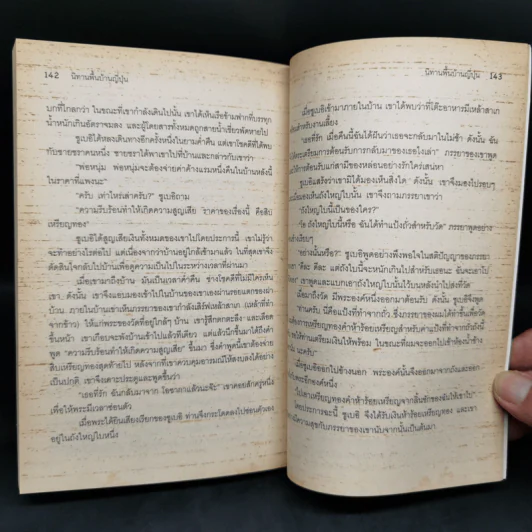 142 นิทานพื้นบ้านญี่ปุ่น
บกที่ไกลกว่า ในขณะที่เขากำลังเดินไปนั้น เขาได้เห็นเรือข้ามฟากที่บรรทุก
น้ำหนักเกินอัตราจมลง และผู้โดยสารทั้งหมดถูกสายน้ำเชี่ยวพัดหายไป
ชูเบอิได้หลงเดินทางอีกครั้งหนึ่งในยามค่ำคืน แต่เขาโชคดีที่ได้พบ
กับชายชราคนหนึ่ง ชายชราได้พาเขาไปที่บ้านและกล่าวกับเขาว่า
"พ่อหนุ่ม พ่อหนุ่มจะต้องจ่ายค่าค้างแรมหนึ่งคืนในบ้านหลังนี้
ในราคาที่แพงนะ"
"ครับ เท่าไหร่ล่ะครับ?" ชูเบอิถาม
"ความรีบร้อนทำให้เกิดความสูญเสีย ราคาของเรื่องนี้ คือสิบ
เหรียญทอง"
ชูเบอิได้สูญเสียเงินทั้งหมดของเขาไปโดยประการนี้ เขาไม่รู้ว่า
จะทำอย่างไรต่อไป แต่เนื่องจากว่าบ้านอยู่ใกล้เข้ามาแล้ว ในที่สุดเขาจึง
ตัดสินใจกลับไปบ้านเพื่อดูความเป็นไปในระหว่างเวลาที่ผ่านมา
เมื่อเขามาถึงบ้าน มันเป็นเวลาค่ำคืน ช่างโชคดีที่ไม่มีใครเห็น
เขา ดังนั้น เขาจึงแอบมองเข้าไปในบ้านของเขาเองผ่านรอยแตกของฝา
บ้าน ภายในบ้านเขาเห็นภรรยาของเขากำลังเสิร์ฟเหล้าสาเก (เหล้าที่ทำ
จากข้าว) ให้แก่พระของวัดที่อยู่ใกล้ๆ บ้าน เขารู้สึกตกตะลึง และเลือด
ขึ้นหน้า เขาเกือบจะพังบ้านเข้าไปแล้วทีเดียว แต่แล้วนึกขึ้นมาได้ถึงคำ
พูด "ความรีบร้อนทำให้เกิดความสูญเสีย" ขึ้นมา ซึ่งคำพูดนี้เขาต้องจ่าย
สิบเหรียญทองสุดท้ายไป หลังจากที่เขาควบคุมอารมณ์ให้สงบลงได้อย่าง
เป็นปกติ เขาจึงเคาะประตูและพูดขึ้นว่า
"เธอที่รัก ฉันกลับมาจาก โอซากาแล้วนะจ๊ะ" เขาคอยสักครู่หนึ่ง
เพื่อให้พระมีเวลาซ่อนตัว
เมื่อพระได้ยินเสียงเรียกของชูเบอิ ท่านจึงกระโดดลงไปซ่อนตัวเอง
อยู่ในถังใหญ่ใบหนึ่ง
นิทานพื้นบ้านญี่ปุ่น 143
เมื่อชูเบอิเข้ามาภายในบ้าน เขาได้พบว่าที่โต๊ะอาหารมีเหล้าสาเก
สำหรับงานเลี้ยง
"เธอที่รัก เมื่อคืนนี้ฉันได้ฝันว่าเธอจะกลับมาในไม่ช้า ดังนั้น ฉัน
จึงตระเตรียมการต้อนรับการกลับมาของเธอไงเล่า" ภรรยาของเขาพูด
ให้การต้อนรับแก่สามีของหล่อนอย่างรักใคร่เสน่หา
ชูเบอิแสร้งว่าเขามิได้มองเห็นสิ่งใด ดังนั้น เขาจึงมองไปรอบๆ
มองเห็นถังใหญ่ใบนั้น เขาจึงถามภรรยาเขาว่า
"ถังใหญ่ใบนี้เป็นของใคร?"
"โอ ถังใหญ่ใบนี้หรือ ฉันได้ทำแป้งถั่วสำหรับวัด" ภรรยาพูดอย่าง
เงียบๆ
"อย่างนั้นหรือ?" ชูเบอิพูดอย่างพึงพอใจในสติปัญญาของภรรยา
"ดีละ ดีละ แต่ถังใบนี้จะหนักเกินไปสำหรับเธอนะ ฉันจะเอาไป
เขาพูดและแบกเอาถังใหญ่ใบนั้นไว้บนหลังนำไปส่งที่วัด
เมื่อมาถึงวัด มีพระองค์หนึ่งออกมาต้อนรับ ดังนั้น ชูเบอิจึงพูด
"ท่านครับ นี่คือแป้งที่ทำจากถั่ว ซึ่งภรรยาของผมได้ทำขึ้นเพื่อวัด
ต้องการเหรียญทองคำห้าร้อยเหรียญสำหรับค่าแป้งที่ทำจากถั่วถังนี้
ให้ท่านเตรียมเงินให้พร้อม ในขณะที่ผมจะออกไปเข้าห้องน้ำข้าง
นะครับ"
เมื่อชูเบอิออกไปข้างนอก พระองค์นั้นจึงออกมาจากถังและออก
พระอีกองค์หนึ่ง
"ไปเอาเหรียญทองคำห้าร้อยเหรียญจากลิ้นชักของฉันให้เขาไป"
โดยประการฉะนี้ ชูเบอิ จึงได้รับเงินห้าร้อยเหรียญทอง และเขา
มีความสุขกับภรรยาของเขานับจากนั้นเป็นต้นมา